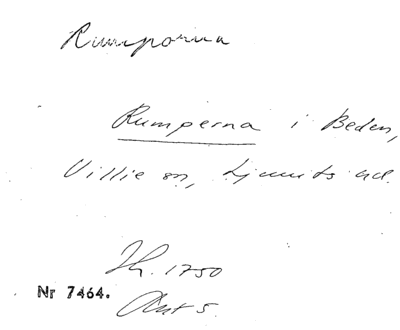 Rumporna
Rumperna i Beden,
Villie sn, Ljunits hd.
Jh. 1750
Nr 7464. Akt 5.